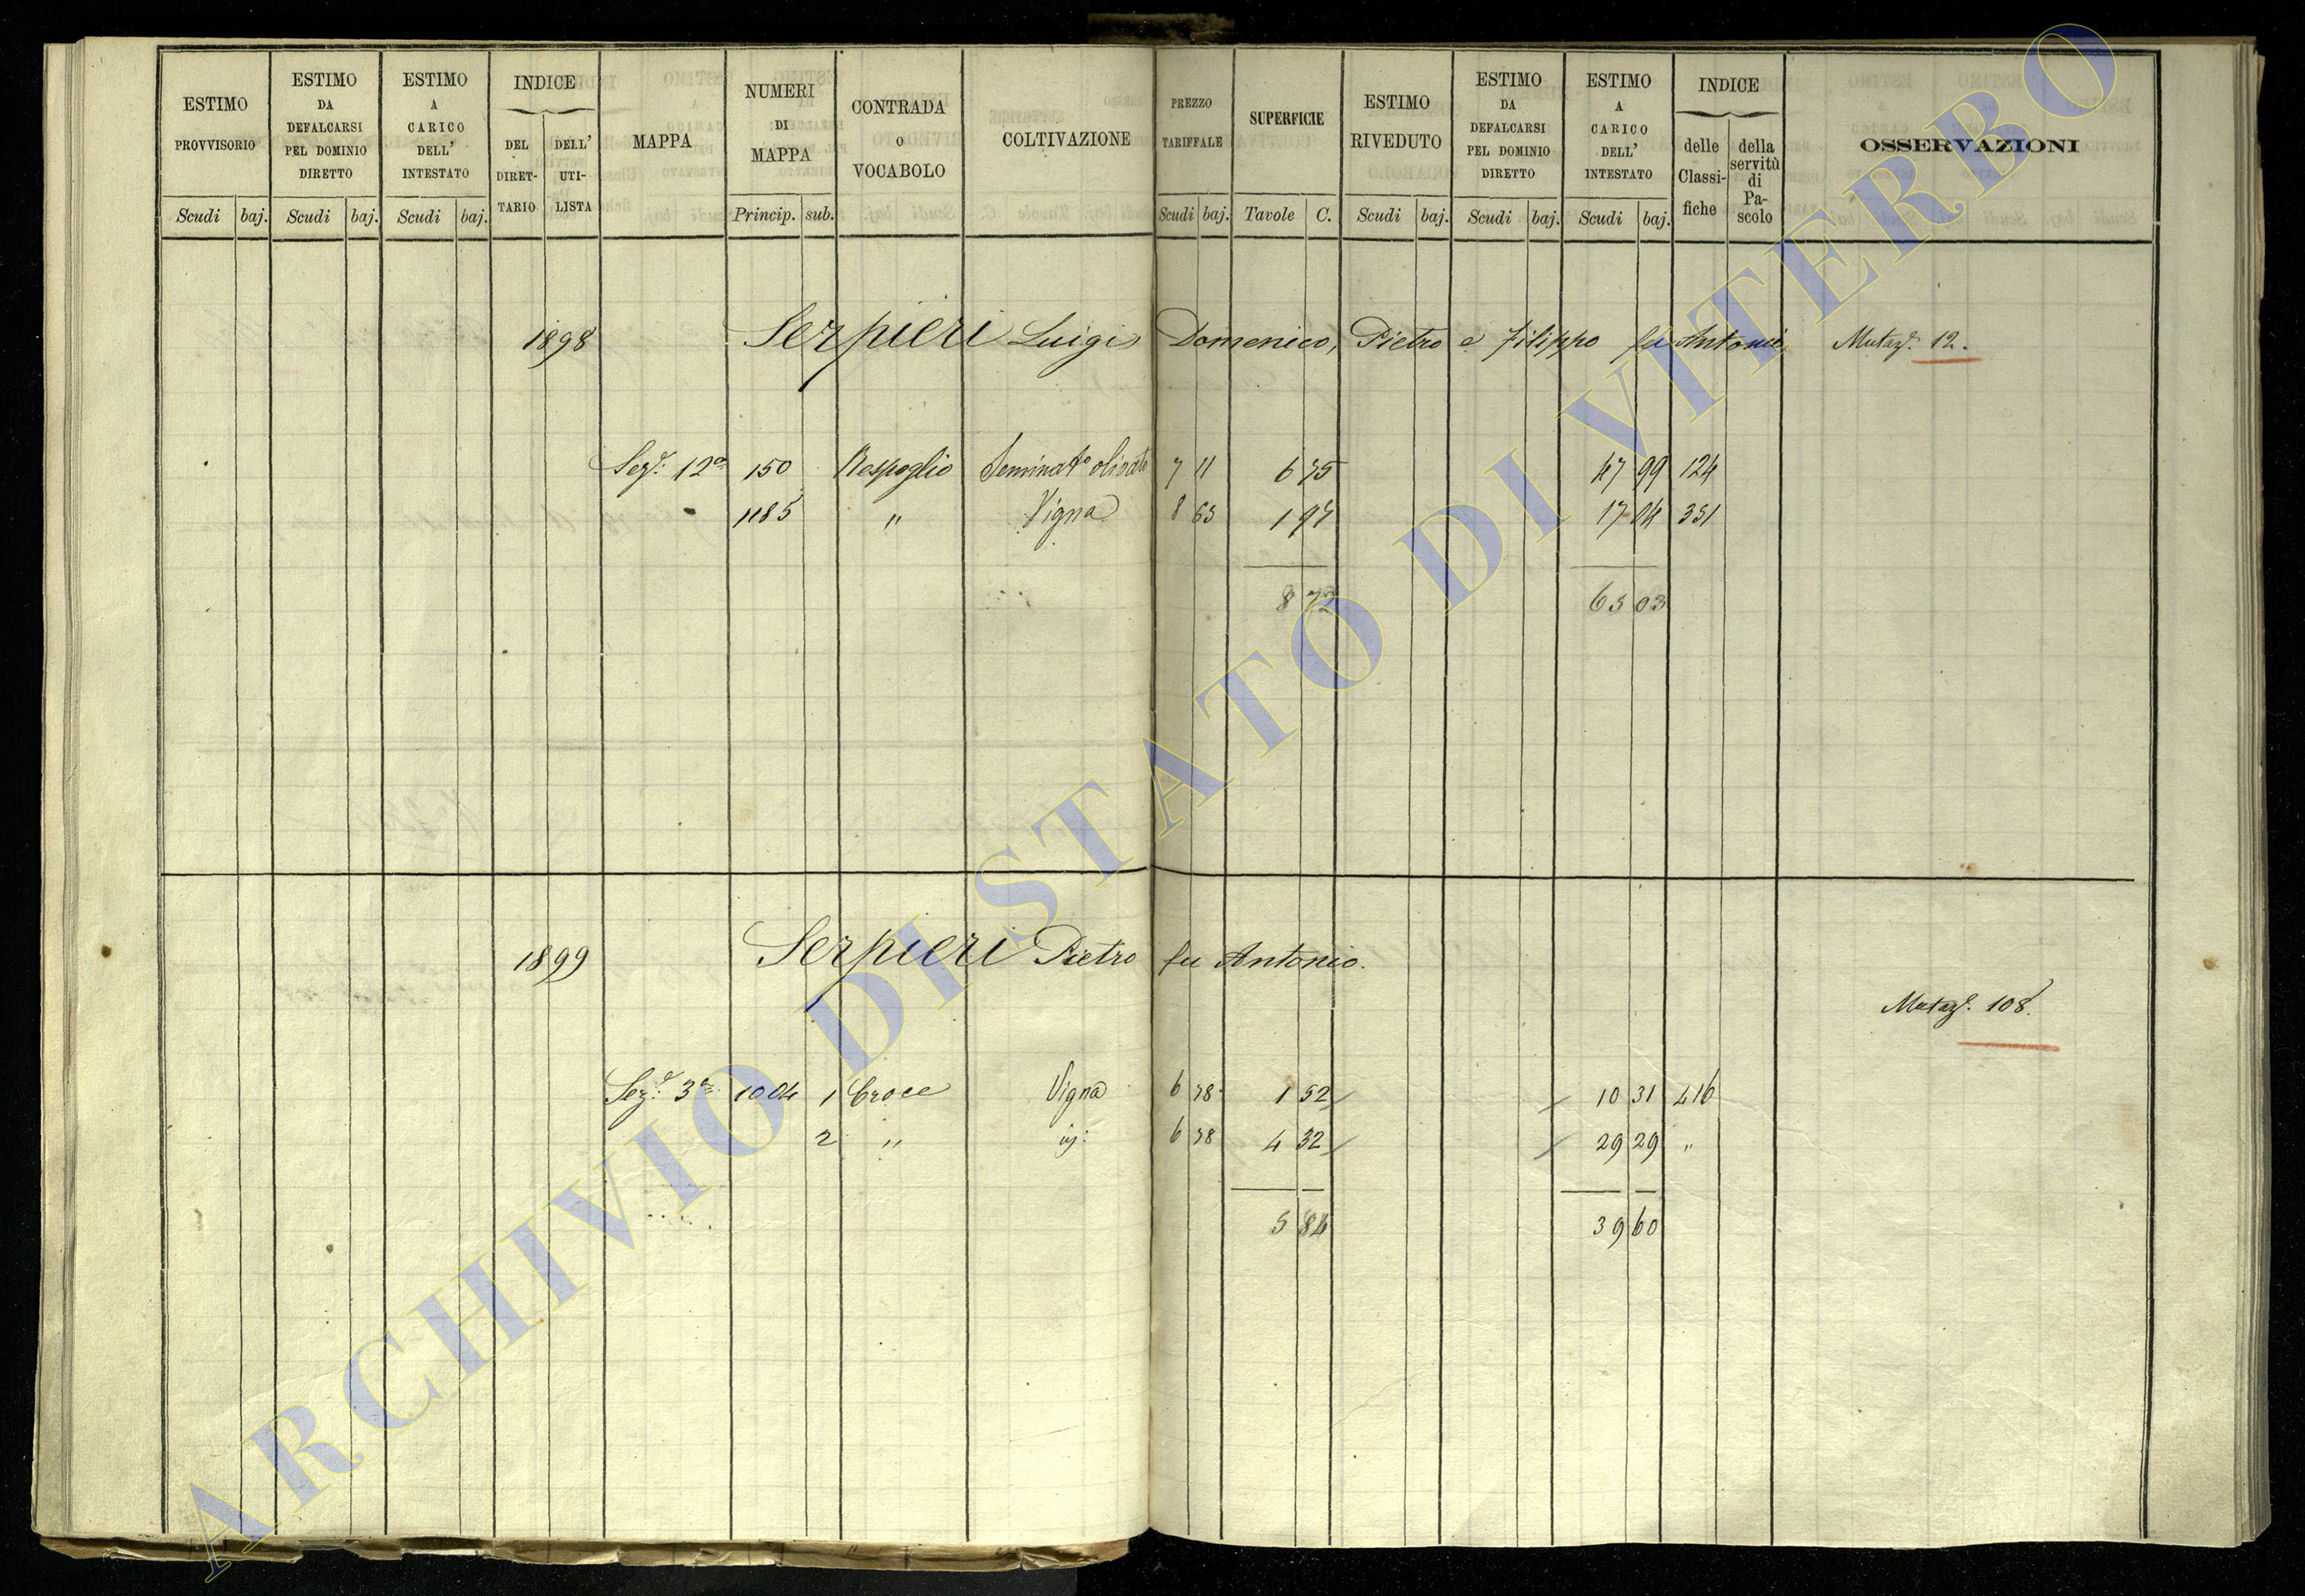 ESTIMO PROVVISORIO
Scudi baj.
ESTIMO DA DEFALCARSI PEL DOMINIO DIRETTO
Scudi baj.
ESTIMO A CARICO DELL' INTESTATO
Scudi baj.
INDICE
DEL DIRET- TARIO
DELL' UTI- LISTA
MAPPA
NUMERI DI MAPPA
Princip. sub.
CONTRADA O VOCABOLO
COLTIVAZIONE
PREZZO TARIFFALE
Scudi baj.
SUPERFICIE
Tavole C.
ESTIMO RIVEDUTO
Scudi baj.
ESTIMO DA DEFALCARSI PEL DOMINIO DIRETTO
Scudi baj.
ESTIMO A CARICO DELL' INTESTATO
Scudi baj.
INDICE
delle Classi- fiche
della servitù di Pa- scolo
OSSERVAZIONI
1898 Serpieri Luigi, Domenico, Pietro e Filippo fu Antonio Mutaz.e 12.
Sez.e 12a 150 Respoglio Seminato olivato 7 11 6 75 47 99 124
1185 " Vigna 8 65 1 97 17 04 351
8 72 65 03
1899 Serpieri Pietro fu Antonio.
Mutaz.e 108.
Sez.e 3a 1004 1 Croce Vigna 6 78 1 52 10 31 416
2 " id: 6 78 4 32 29 29 "
5 84 39 60
ARCHIVIO DI STATO DI VITERBO